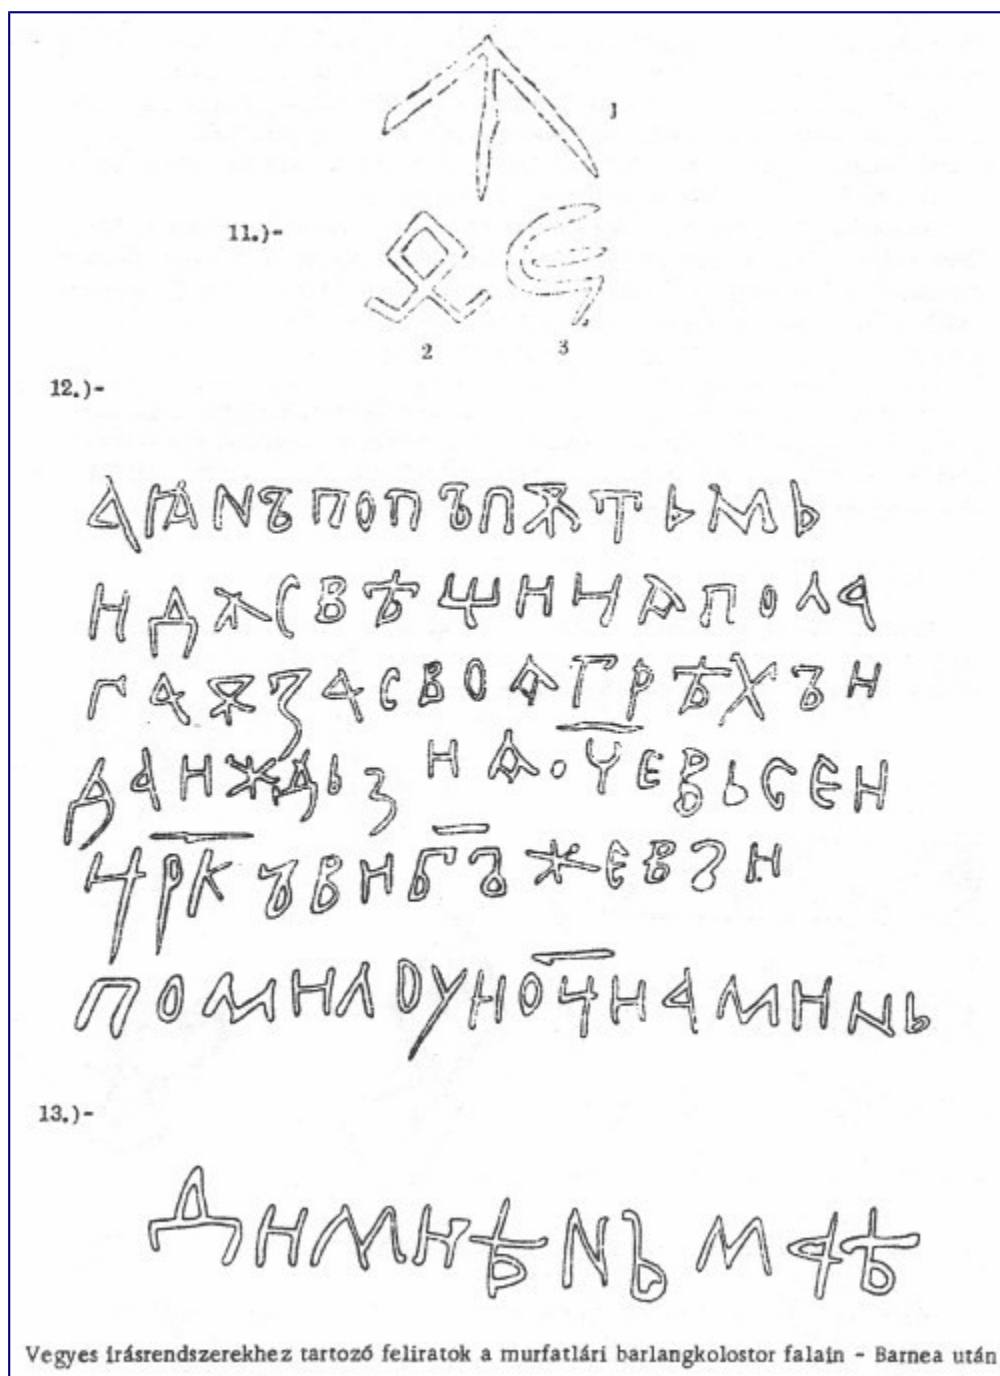 1
11.)-
2 3
12.)-
АꙖNЪПОПЪПѪТЬМЬ
НДѪСВѢЩННАПОЛА
ГАѪЗАСВОѦГРѢХЪН
ДАНЖДЬЗ НА·ЧЕВЬСЕН
ЧРКЪВНБЪЖЕВЗН
ПОМНЛОУНОЧНАМННЬ
13.)-
ДНМНѢNЪ МАѢ
Vegyes írásrendszerekhez tartozó feliratok a murfatlári barlangkolostor falain - Barnea után